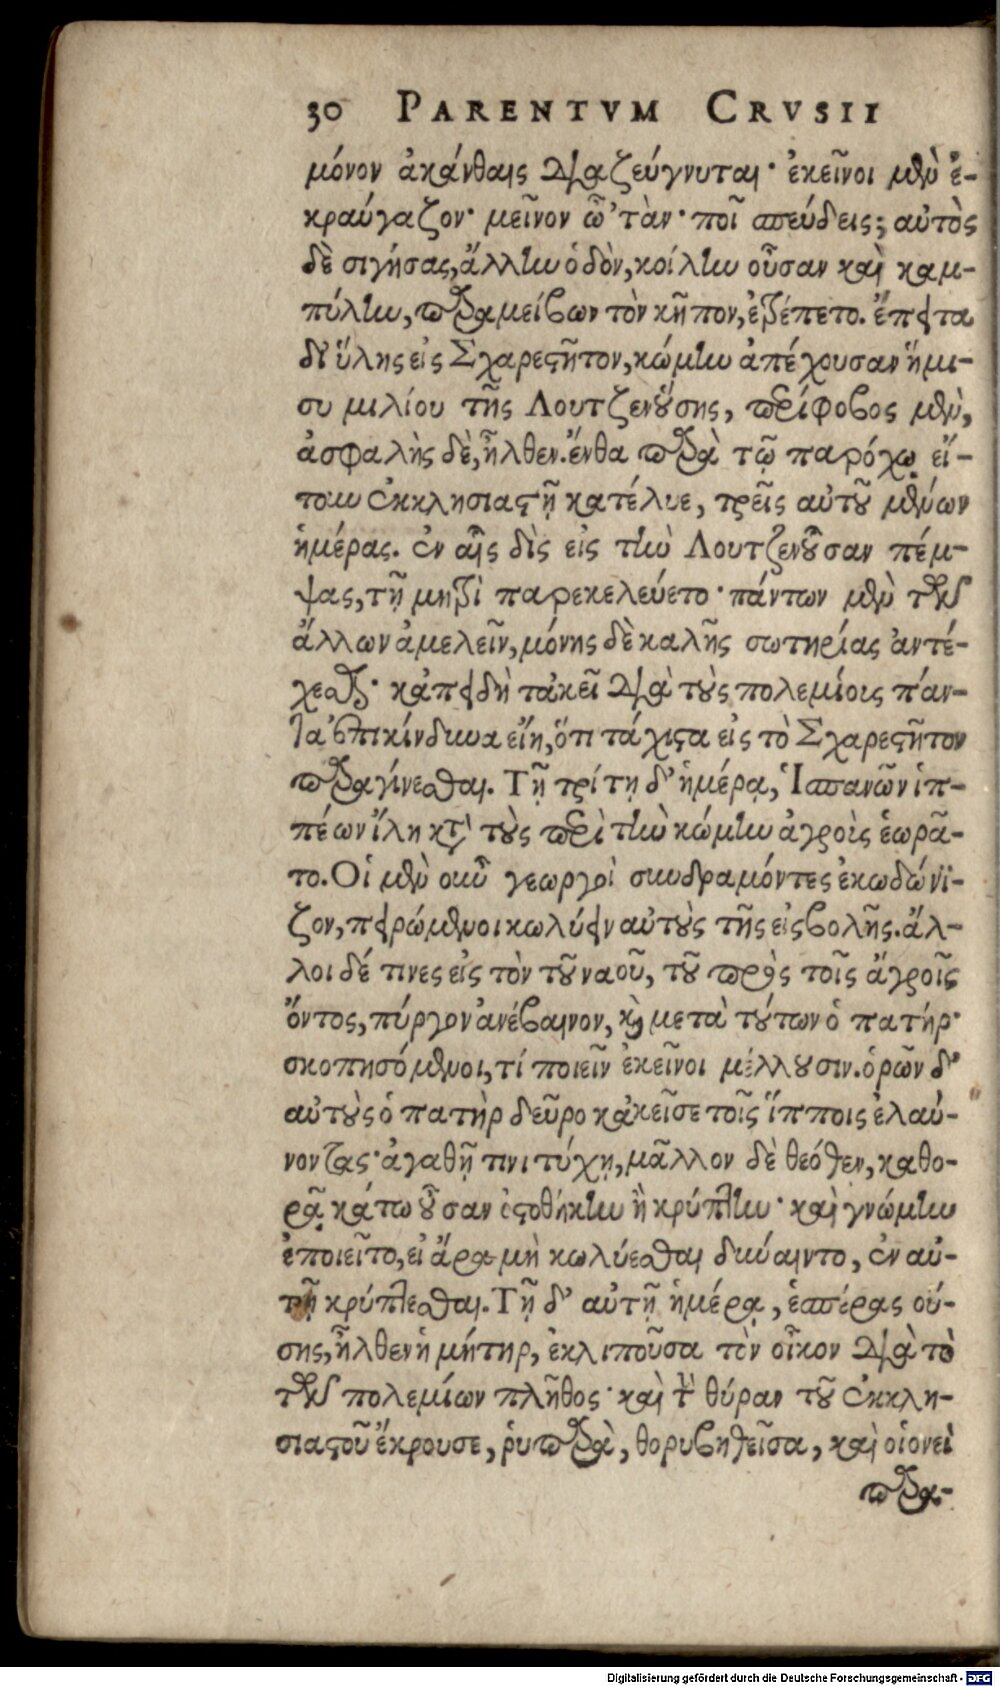 30 PARENTVM CRVSII
μόνον ἀκάνθαις διαζεύγνυται· ἐκεῖνοι μὲν ἐ-
κραύγαζον· μεῖνον ὦ ’τὰν· ποῖ σπεύδεις; αὐτὸς
δὲ σιγήσας, ἄλλην ὁδὸν, κοίλην οὖσαν καὶ καμ-
πύλην, παραμείβων τὸν κῆπον, ἐτρέπετο. ἔπειτα
δι’ ὕλης εἰς Σχαρεστῆτον, κώμην ἀπέχουσαν ἥμι-
συ μιλίου τῆς Λουτζενούσης, περίφοβος μὲν,
ἀσφαλὴς δὲ, ἦλθεν. ἔνθα παρὰ τῷ παρόχῳ εἴ-
τουν ἐκκλησιαστῇ κατέλυε, τρεῖς αὐτοῦ μένων
ἡμέρας. ἐν αἷς δὶς εἰς τὴν Λουτζενοῦσαν πέμ-
ψας, τῇ μητρὶ παρεκελεύετο· πάντων μὲν τῶν
ἄλλων ἀμελεῖν, μόνης δὲ καλῆς σωτηρίας ἀντέ-
χεσθαι· κἀπειδὴ τἀκεῖ διὰ τοὺς πολεμίοις πάν-
τα ἐπικίνδυνα εἴη, ὅτι τάχιστα εἰς τὸ Σχαρεστῆτον
παραγίνεσθαι. Τῇ τρίτῃ δ’ ἡμέρᾳ, Ἱσπανῶν ἱπ-
πέων ἴλη κατὰ τοὺς περὶ τὴν κώμην ἀγροὺς ἑωρᾶ-
το. Οἱ μὲν οὖν γεωργοὶ συνδραμόντες ἐκωδώνι-
ζον, πειρώμενοι κωλύειν αὐτοὺς τῆς εἰσβολῆς. ἄλ-
λοι δέ τινες εἰς τὸν τοῦ ναοῦ, τοῦ πρὸς τοῖς ἄγροῖς
ὄντος, πύργον ἀνέβαινον, καὶ μετὰ τούτων ὁ πατήρ·
σκοπησόμενοι, τί ποιεῖν ἐκεῖνοι μέλλουσιν. ὁρῶν δ’
αὐτοὺς ὁ πατὴρ δεῦρο κἀκεῖσε τοῖς ἵπποις ἐλαύ-
νοντας· ἀγαθῇ τινι τύχῃ, μᾶλλον δὲ θεόθεν, καθο-
ρᾷ κάτω οὖσαν ὀστοθήκην ἢ κρύπτην· καὶ γνώμην
ἐποιεῖτο, εἰ ἄρα μὴ κωλύεσθαι δύναιντο, ἐν αὐ-
τῇ κρύπτεσθαι. Τῇ δ’ αὐτῇ ἡμέρᾳ, ἑσπέρας οὐ-
σης, ἦλθεν ἡ μήτηρ, ἐκλιποῦσα τὸν οἶκον διὰ τὸ
τῶν πολεμίων πλῆθος· καὶ τὴν θύραν τοῦ ἐκκλη-
σιαστοῦ ἔκρουσε, ῥυπαρὰ, θορυβηθεῖσα, καὶ οἱονεὶ
παρα-
Digitalisierung gefördert durch die Deutsche Forschungsgemeinschaft - DFG